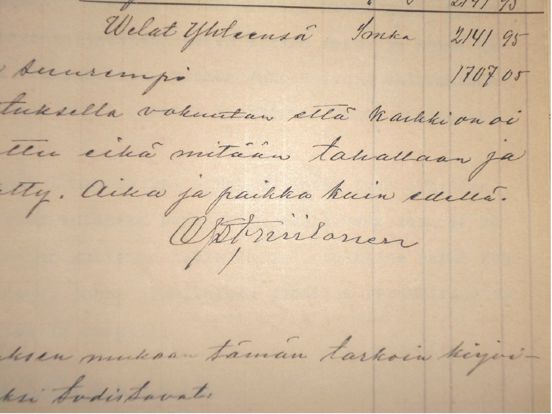 2141 95
Welat Yhteensä Smka 2141 95
suurempi 1707 05
tuksella vakuutan että kaikki on oi
ttu eikä mitään tahallaan ja
etty. Aika ja paikka kuin edellä.
uksen mukaan tämän tarkoin kirjoi-
ksi todistavat: